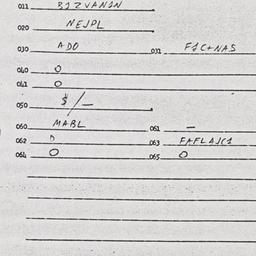 011 BIZVANIN
020 NEJPL
030 ADO 031 FIC+NAS
040 0
041 0
050 $/—
060 MABL 061 —
062 D 063 FAFLAJCI
064 0 065 0